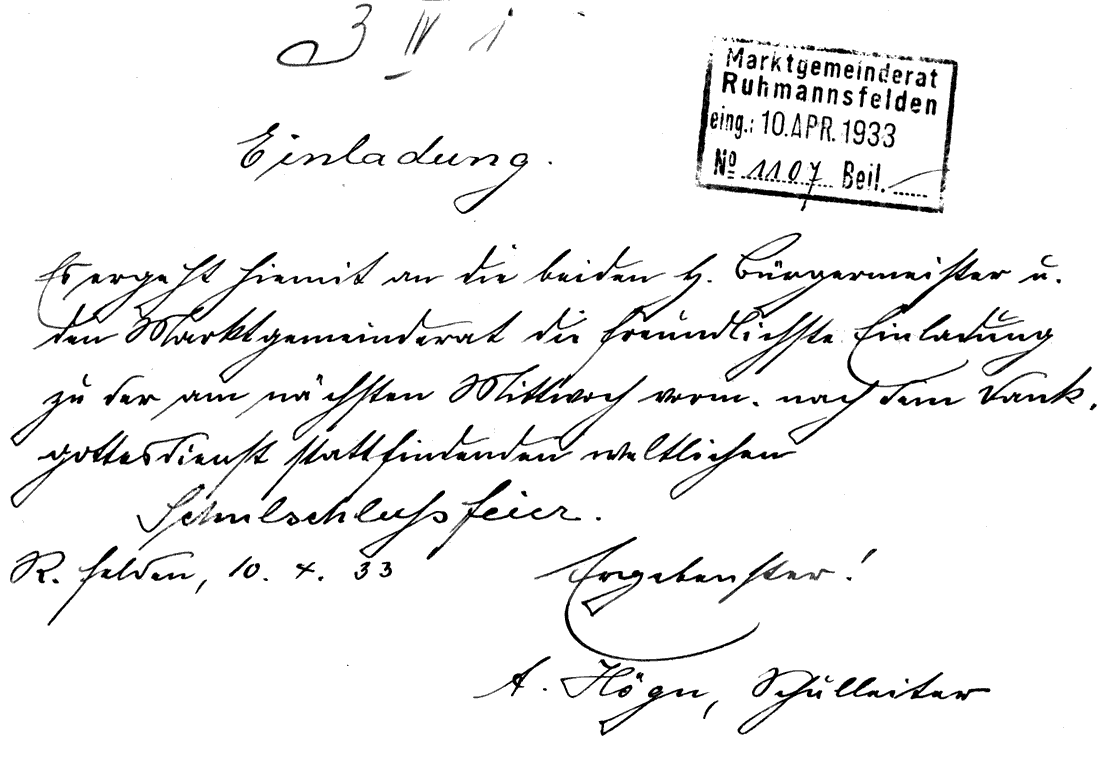 3 IV 1
Marktgemeinderat
Ruhmannsfelden
eing.: 10. APR. 1933
No 1107 Beil.
Einladung.
Es ergeht hiemit an die beiden H. Bürgermeister u.
den Marktgemeinderat die freundlichste Einladung
zu der am nächsten Mittwoch vorm. nach dem Dank-
gottesdienst stattfindenden weltlichen
Schulschlussfeier.
R. felden, 10. 4. 33
Ergebenster!
A. Högn, Schulleiter